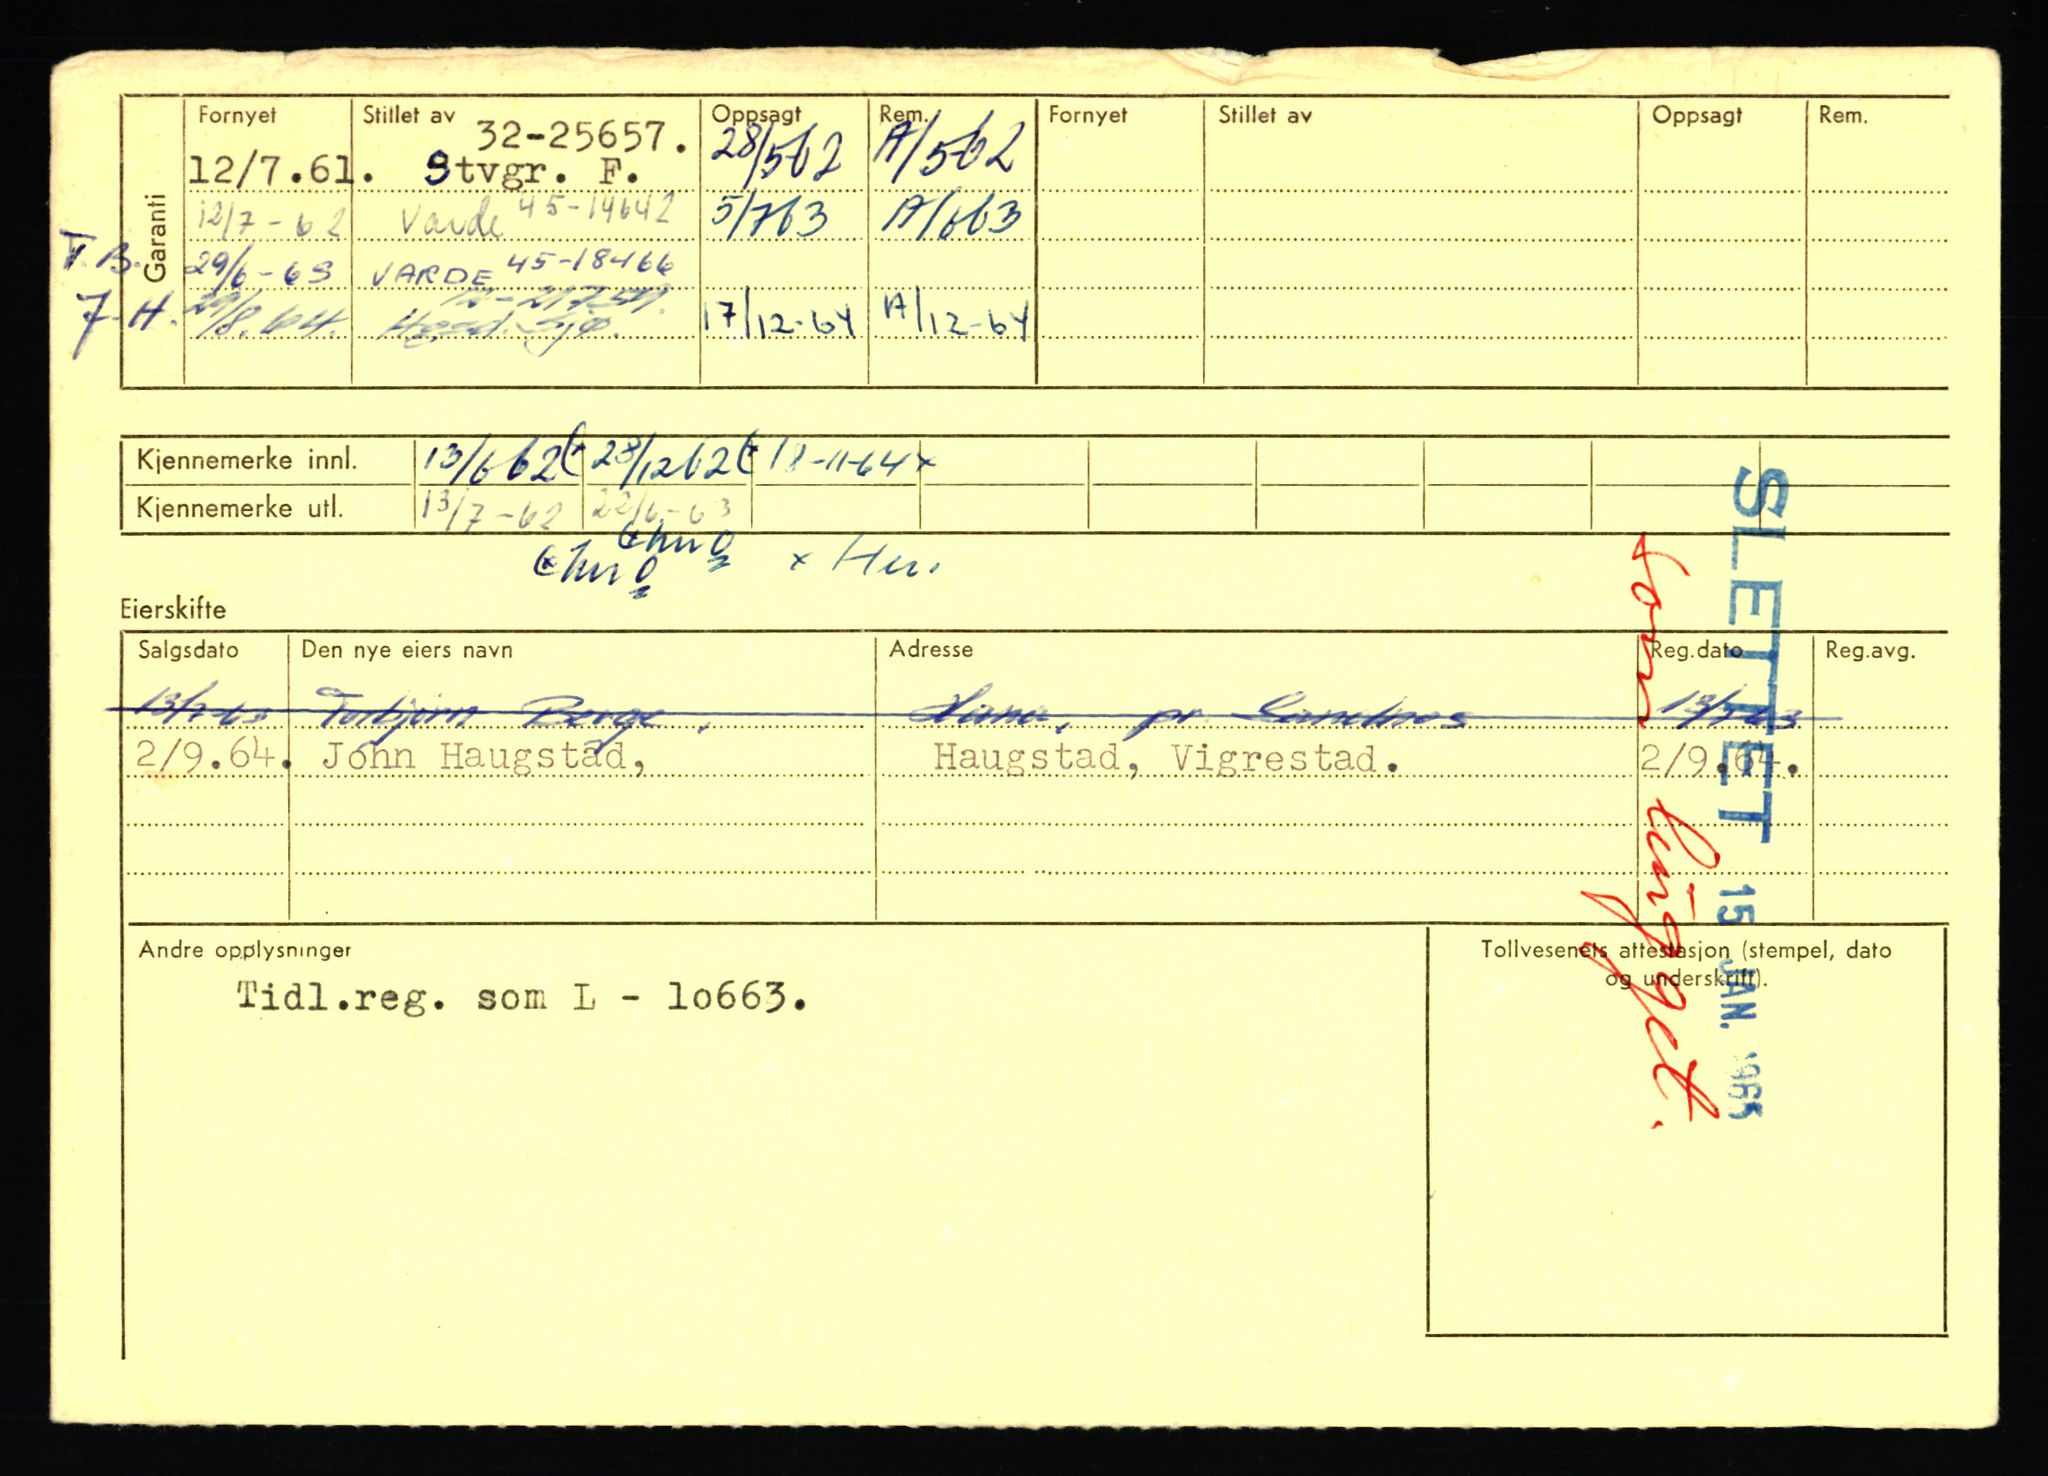 Garanti
Fornyet Stillet av Oppsagt Rem. Fornyet Stillet av Oppsagt Rem.
32-25657.
12/7.61. Stvgr. F. 28/5 62 A/5 62
12/7-62 Varde 45-14642 5/7 63 A/6 63
T.B. 29/6-63 VARDE 45-18466
J.H. /8.64. 17/12-64 A/12-64
Kjennemerke innl. 13/6 62 28/12 62 18-11-64 x
Kjennemerke utl. 13/7-62 22/6-63
x
Eierskifte
Salgsdato Den nye eiers navn Adresse Reg.dato Reg.avg.
13/7-63 Torbjørn Berge, Hana, pr. Sandnes 13/7 63
2/9.64. John Haugstad, Haugstad, Vigrestad. 2/9.64.
Andre opplysninger
Tidl.reg. som L - lo663.
Tollvesenets attestasjon (stempel, dato
og underskrift).
SLETTET 15 JAN. 1965
som hugget.